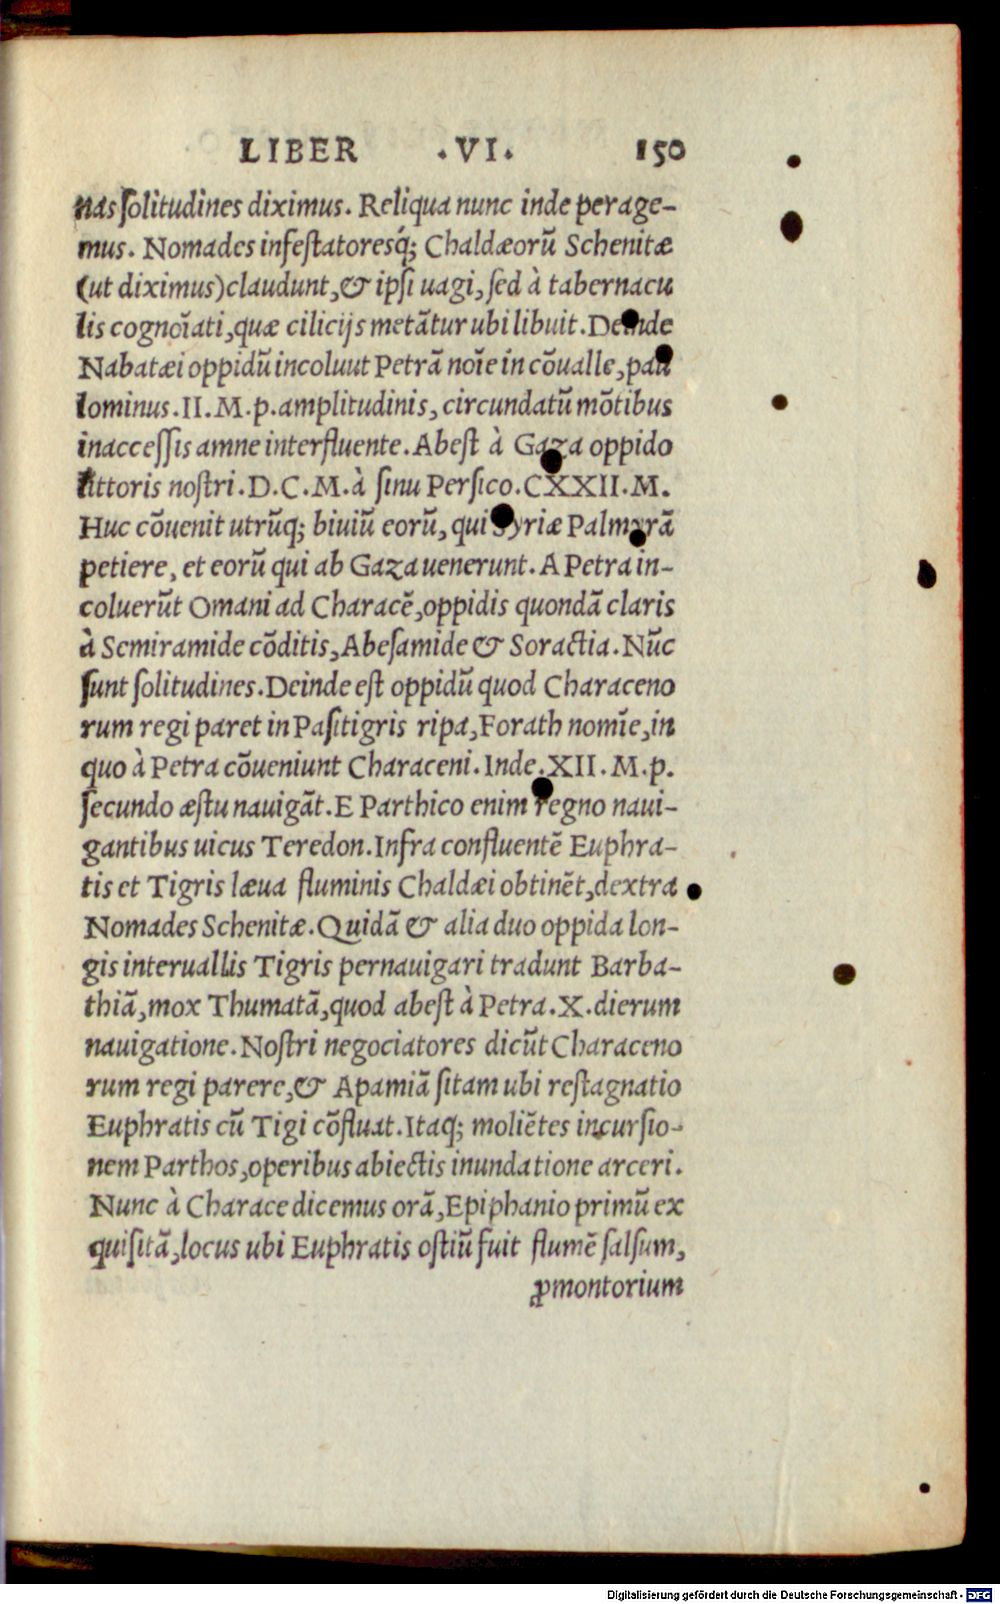 LIBER .VI. 150
nas ſolitudines diximus. Reliqua nunc inde perage-
mus. Nomades infeſtatoresq́; Chaldæorũ Schenitæ
(ut diximus) claudunt, & ipſi uagi, ſed à tabernacu
lis cognoĩati, quæ cilicijs metãtur ubi libuit. Deinde
Nabatæi oppidũ incoluut Petrã noĩe in cõualle, pau
lominus .II.M.p. amplitudinis, circundatũ mõtibus
inacceſſis amne interfluente. Abeſt à Gaza oppido
littoris noſtri .D.C.M. à ſinu Perſico .CXXII.M.
Huc cõuenit utrũq; biuiũ eorũ, qui Syriæ Palmyrã
petiere, et eorũ qui ab Gaza uenerunt. A Petra in-
coluerũt Omani ad Characẽ, oppidis quondã claris
à Semiramide cõditis, Abeſamide & Soractia. Nũc
ſunt ſolitudines. Deinde eſt oppidũ quod Characeno
rum regi paret in Paſitigris ripa, Forath nomĩe, in
quo à Petra cõueniunt Characeni. Inde .XII.M.p.
ſecundo æſtu nauigãt. E Parthico enim regno naui-
gantibus uicus Teredon. Infra confluentẽ Euphra-
tis et Tigris læua fluminis Chaldæi obtinẽt, dextra
Nomades Schenitæ. Quidã & alia duo oppida lon-
gis interuallis Tigris pernauigari tradunt Barba-
thiã, mox Thumatã, quod abeſt à Petra .X. dierum
nauigatione. Noſtri negociatores dicũt Characeno
rum regi parere, & Apamiã ſitam ubi reſtagnatio
Euphratis cũ Tigi cõfluat. Itaq; moliẽtes incurſio-
nem Parthos, operibus abiectis inundatione arceri.
Nunc à Charace dicemus orã, Epiphanio primũ ex
quiſitã, locus ubi Euphratis oſtiũ fuit flumẽ ſalſum,
ꝓmontorium
Digitalisierung gefördert durch die Deutsche Forschungsgemeinschaft - DFG